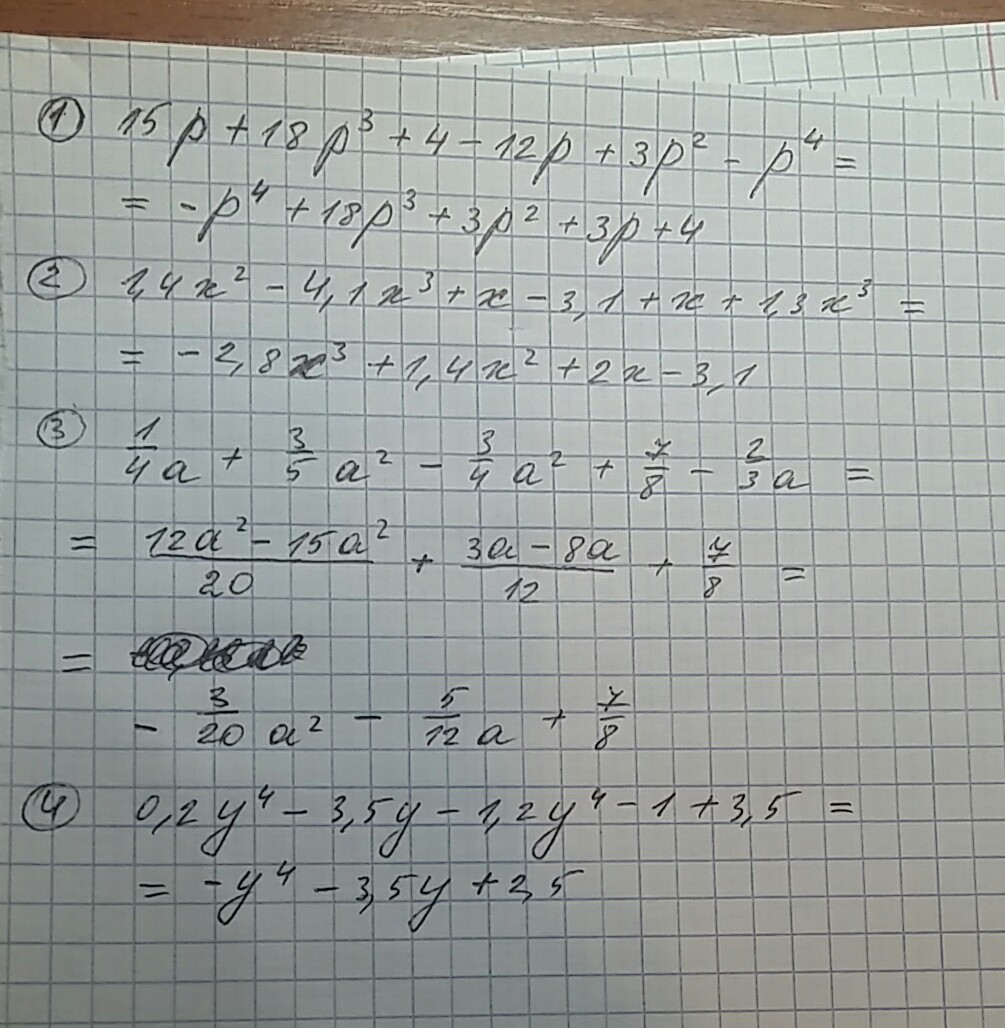 ① 15p + 18p³ + 4 - 12p + 3p² - p⁴ =
= -p⁴ + 18p³ + 3p² + 3p + 4
② 1,4x² - 4,1x³ + x - 3,1 + x + 1,3x³ =
= -2,8x³ + 1,4x² + 2x - 3,1
③ 1/4 a + 3/5 a² - 3/4 a² + 7/8 - 2/3 a =
= (12a² - 15a²)/20 + (3a - 8a)/12 + 7/8 =
=
- 3/20 a² - 5/12 a + 7/8
④ 0,2y⁴ - 3,5y - 1,2y⁴ - 1 + 3,5 =
= -y⁴ - 3,5y + 2,5